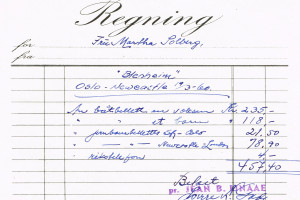 Regning
for Frk. Martha Solberg,
fra
"Blenheim"
Oslo - Newcastle
båtbillett en voksen Kr 235.-
" " et barn " 118.-
" jernbanebillett Oslo " 21,50
" - " - Newcastle London " 78,90
" rikstelefon " 4,-
457.40
Betalt
pr. JEAN B. LINAAE